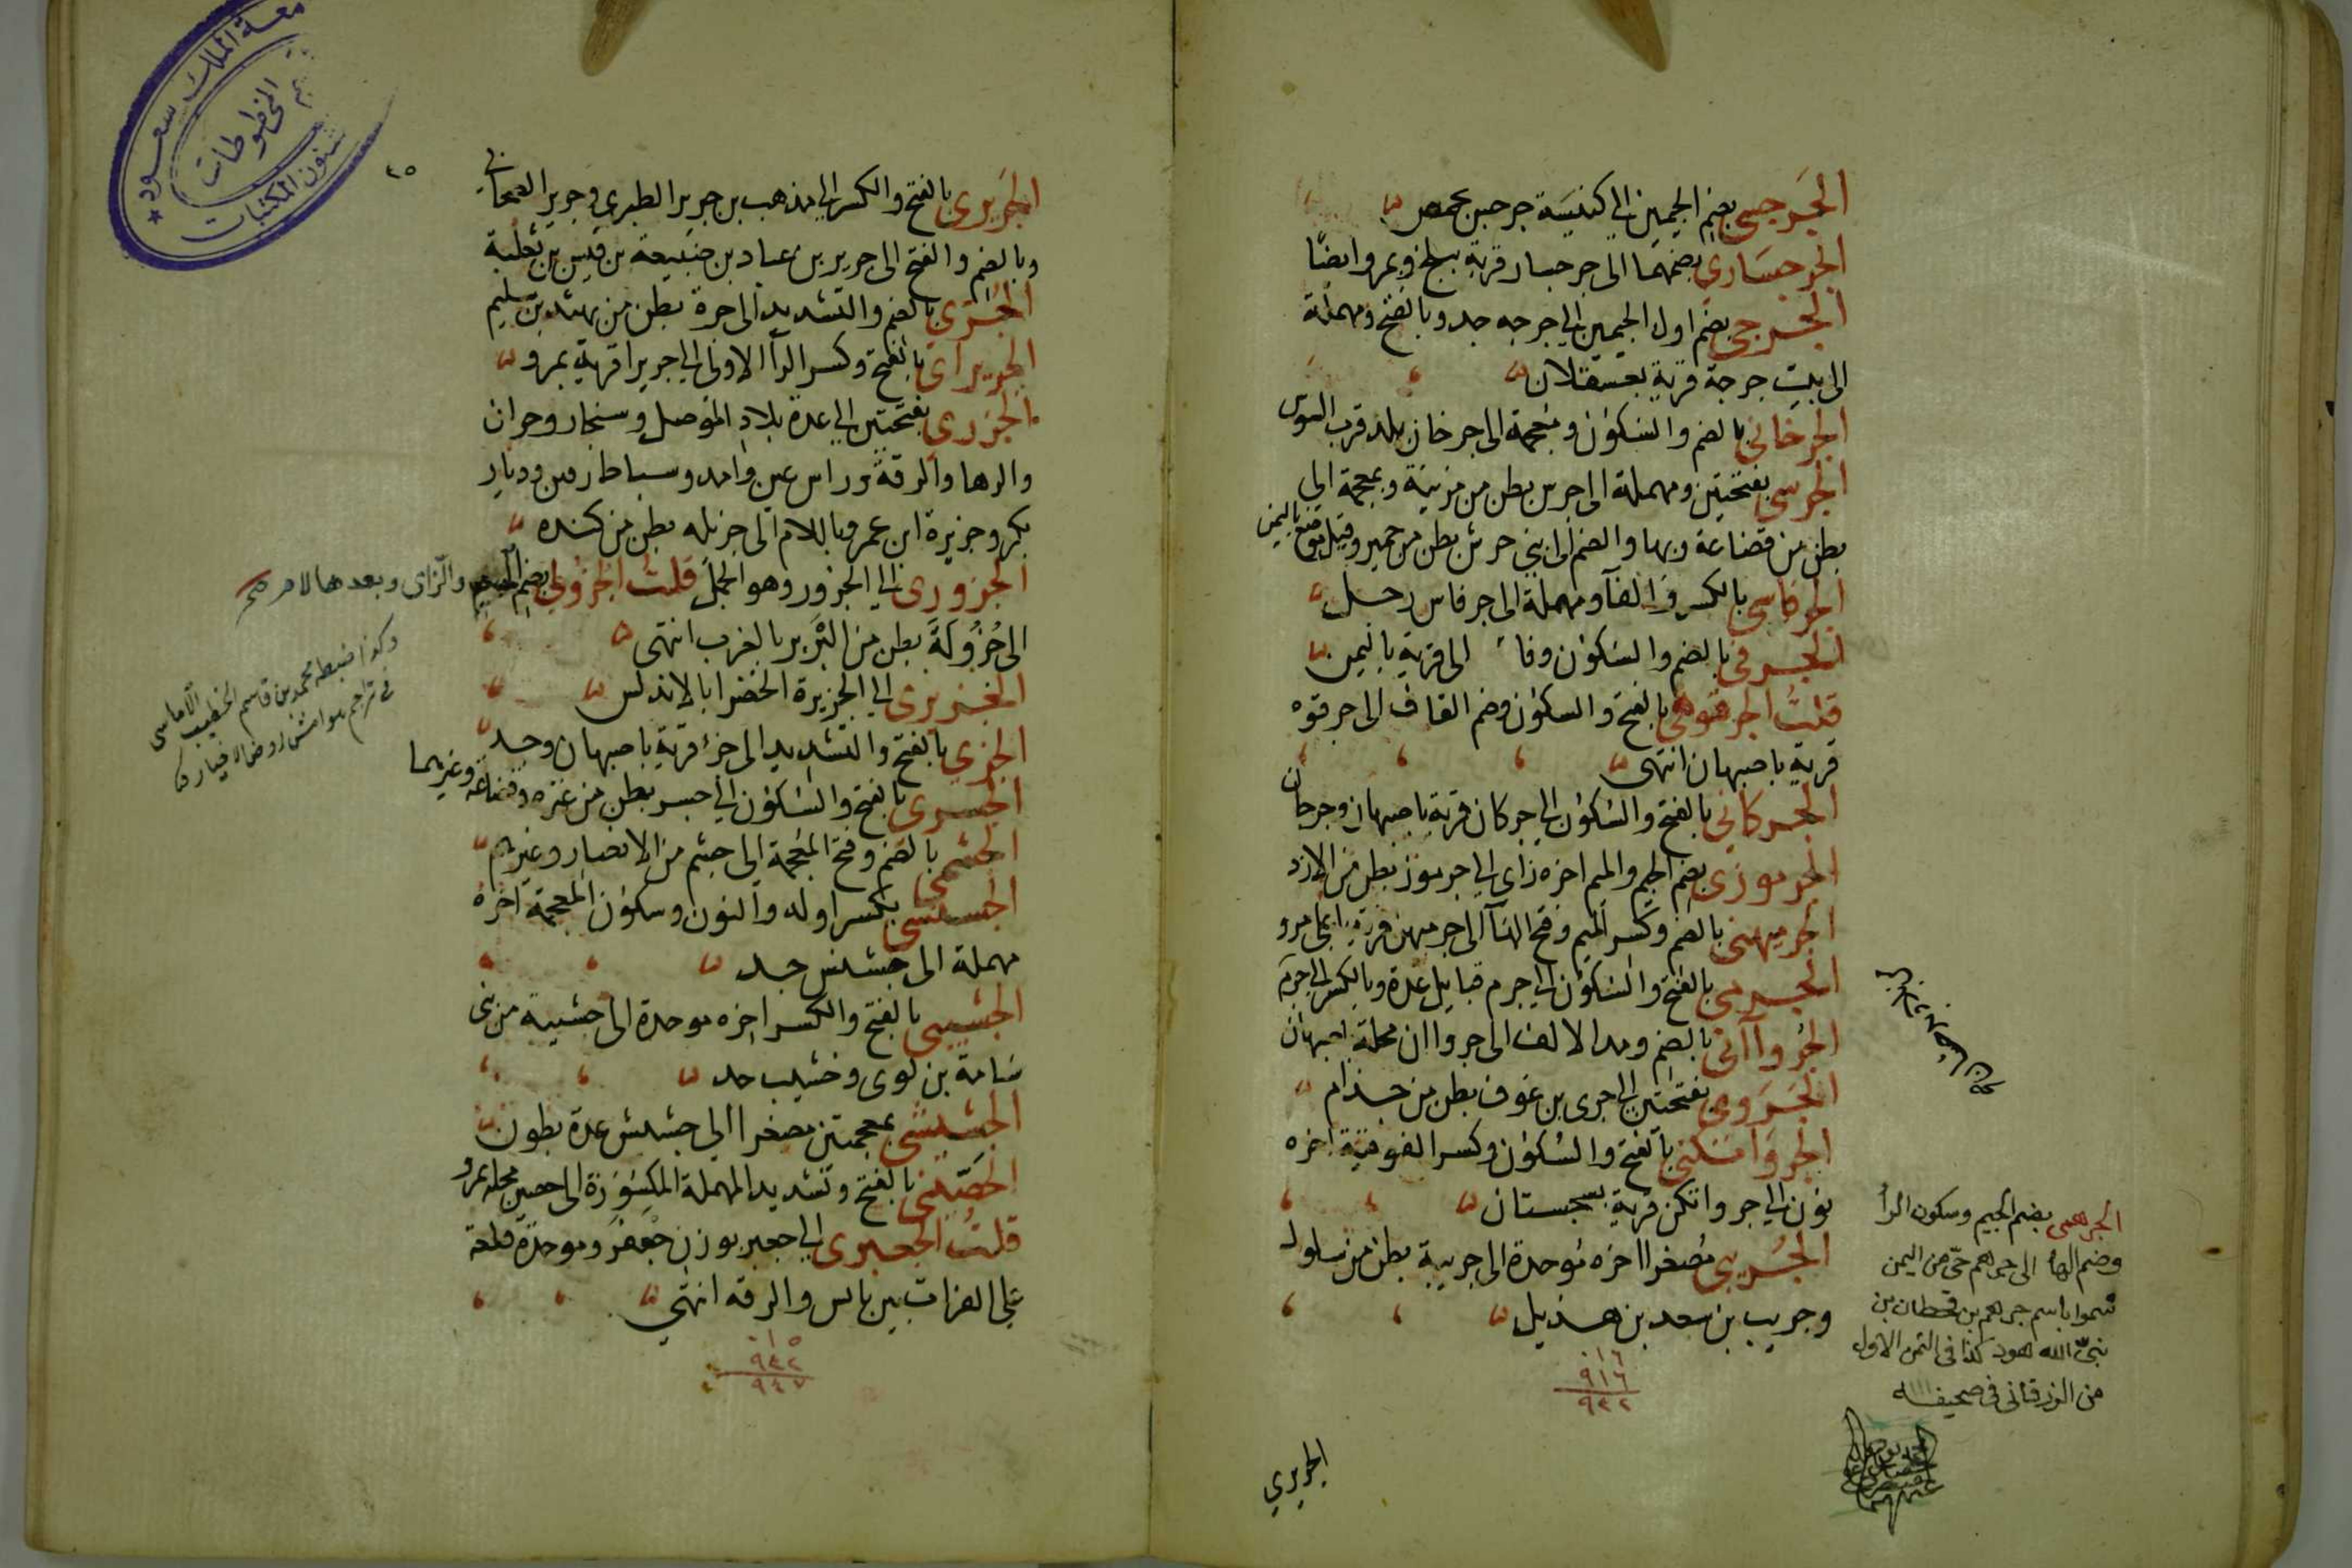 الجرجسي بضم الجيمين الى كنيسة جرجس بحمص
الجرجساري بضمهما الى جرجسار قرية ببلخ وبمرو ايضا
الجرجي بضم اول الجيمين الى جرجه جد وبالفتح ومهملة
الى بيت جرجة قرية بعسقلان
الجرخاني بالضم والسكون ومعجمة الى جرخان بلد قرب السوس
الجرسي بفتحتين ومهملة الى جرس بطن من مزينة وبمعجمة الى
بطن من قضاعة وبها والضم الى بني جرش بطن من حمير وقيل موضع باليمن
الجرفاسي بالكسر والفآ ومهملة الى جرفاس رجل
الجرفي بالضم والسكون وفاء الى قرية باليمن
قلت الجرقوهي بالفتح والسكون وضم القاف الى جرقوه
قرية باصبهان انتهى
الجركاني بالفتح والسكون الى جركان قرية باصبهان وجرجان
الجرموزي بضم الجيم والميم اخره زاى الى جرموز بطن من الازد
الجرميهني بالضم وكسر الميم وفتح الهآ الى جرميهن قرية باعلى مرو
الجرمي بالفتح والسكون الى جرم قبايل عدة وبالكسر الى جرم
الجرواآني بالضم ومد الالف الى جرواان محلة باصبهان
الجروي بفتحتين الى جرى بن عوف بطن من جذام
الجرواتكني بالفتح والسكون وكسر الفوقية اخره
نون الى جرواتكن قرية بسجستان
الجريبي مصغرا اخره موحدة الى جريبة بطن من سلول
وجريب بن سعد بن هذيل
٠١٦
٩١٦
٩٣٢
الجريري
الجرهمى بضم الجيم وسكون الرأ
وضم الهأ الى جرهم حى من اليمن
سموا باسم جرهم بن قحطان بن
نبى الله هود كذا فى الثمن الاول
من الزرقانى فى صحيفه
٢٥
الجريري بالفتح والكسر الى مذهب بن جرير الطبري وجرير الصحابي
وبالضم والفتح الى جرير بن عباد بن ضبيعة بن قيس بن ثعلبة
الجري بالضم والتشديد الى جرة بطن من بهثة بن سليم
الجريراى بالفتح وكسر الرآ الاولى الى جريرا قرية بمرو
الجزري بفتحتين الى عدة بلاد الموصل وسنجار وحران
والرها والرقة وراس عين وامد وسباطارمس وديار
بكر وجزيرة ابن عمر وباللام الى جزيله بطن من كنده
الجزوري الى الجزور وهو الجمل قلت الجزولي بضم الجيم والزاى وبعدها لام صح
الى جزولة بطن من البربر بالغرب انتهى
الجزيري الى الجزيرة الخضرا بالاندلس
الجزي بالفتح والتشديد الى جز قرية باصبهان وجد
الجسري بالفتح والسكون الى جسر بطن من عنزه وقضاعة وغيرهما
الجشمي بالضم وفتح المعجمة الى جشم من الانصار وغيرهم
الجشنسي بكسر اوله والنون وسكون المعجمة اخره
مهملة الى جشنس جد
الجشيبي بالفتح والكسر اخره موحدة الى جشيبة من بنى
سامة بن لوى وخشيب جد
الجشيشي بمعجمتين مصغرا الى جشيش عدة بطون
الجصيني بالفتح وتشديد المهملة المكسورة الى جصين محلة بمرو
قلت الجعبري الى جعبر بوزن جعفر وموحدة قلعة
على الفرات بين بالس والرقه انتهى
٠١٥
٩٣٢
٩٤٧
وكذا ضبطه محمد بن قاسم الخطيب الاماسى
فى تراجم هوامش روض الاخيار
الملك سعود
المخطوطات
شئون المكتبات